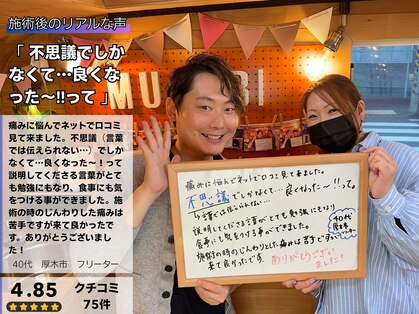 施術後のリアルな声
「 不思議でしか
なくて…良くな
った〜!!って 」
痛みに悩んでネットで口コミ
見て来ました。不思議（言葉
では伝えられない…）でしか
なくて…良くなった〜！って
説明してくださる言葉がとて
も勉強にもなり、食事にも気
をつける事ができました。施
術の時のじんわりした痛みは
苦手ですが来て良かったで
す。ありがとうございまし
た！
40代　厚木市　フリーター
4.85
★★★★★
クチコミ
75件
MU
BI
痛みに悩んでネットで口コミ見て来ました。
不思議でしかなくて… 良くなった〜!!って。
説明してくださる言葉がとても勉強にもなり
食事にも気をつける事ができました。
施術の時のじんわりとした痛みは苦手ですが
来て良かったです。
ありがとうござい
ました！
40代
厚木市
フリーター